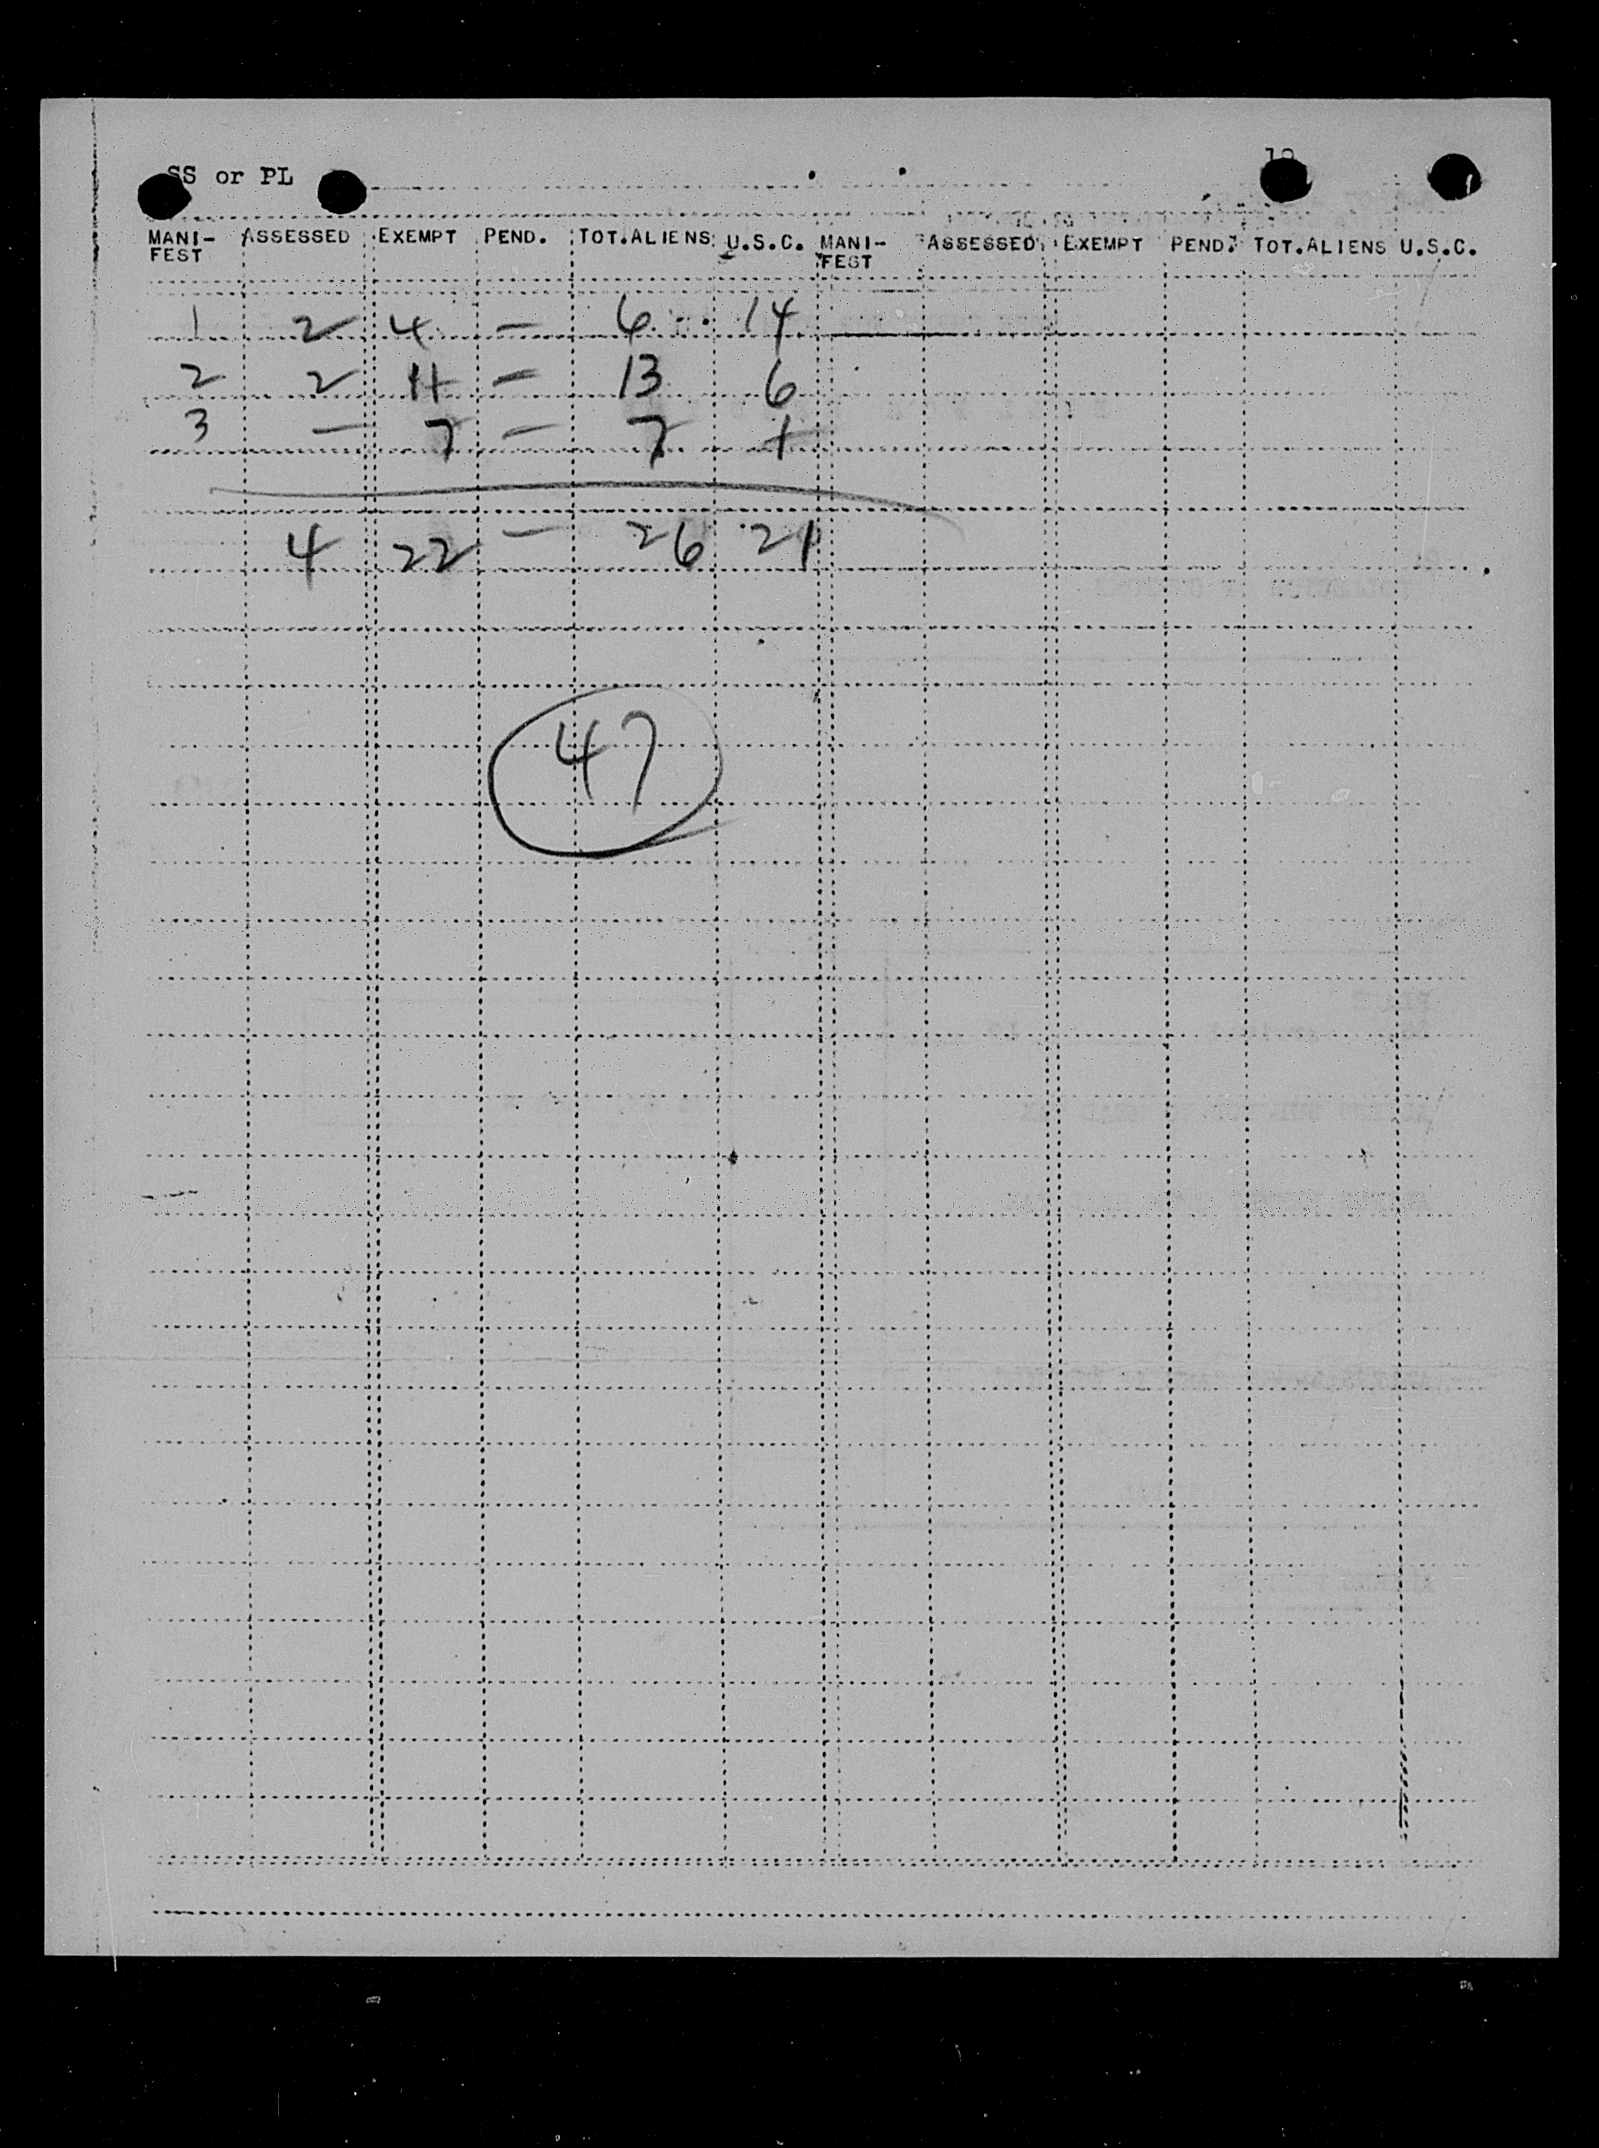 SS or PL 19
MANI-FEST ASSESSED EXEMPT PEND. TOT.ALIENS U.S.C. MANI-FEST ASSESSED EXEMPT PEND. TOT.ALIENS U.S.C.
1 2 4 - 6 14
2 2 11 - 13 6
3 - 7 - 7 1
4 22 - 26 21
47